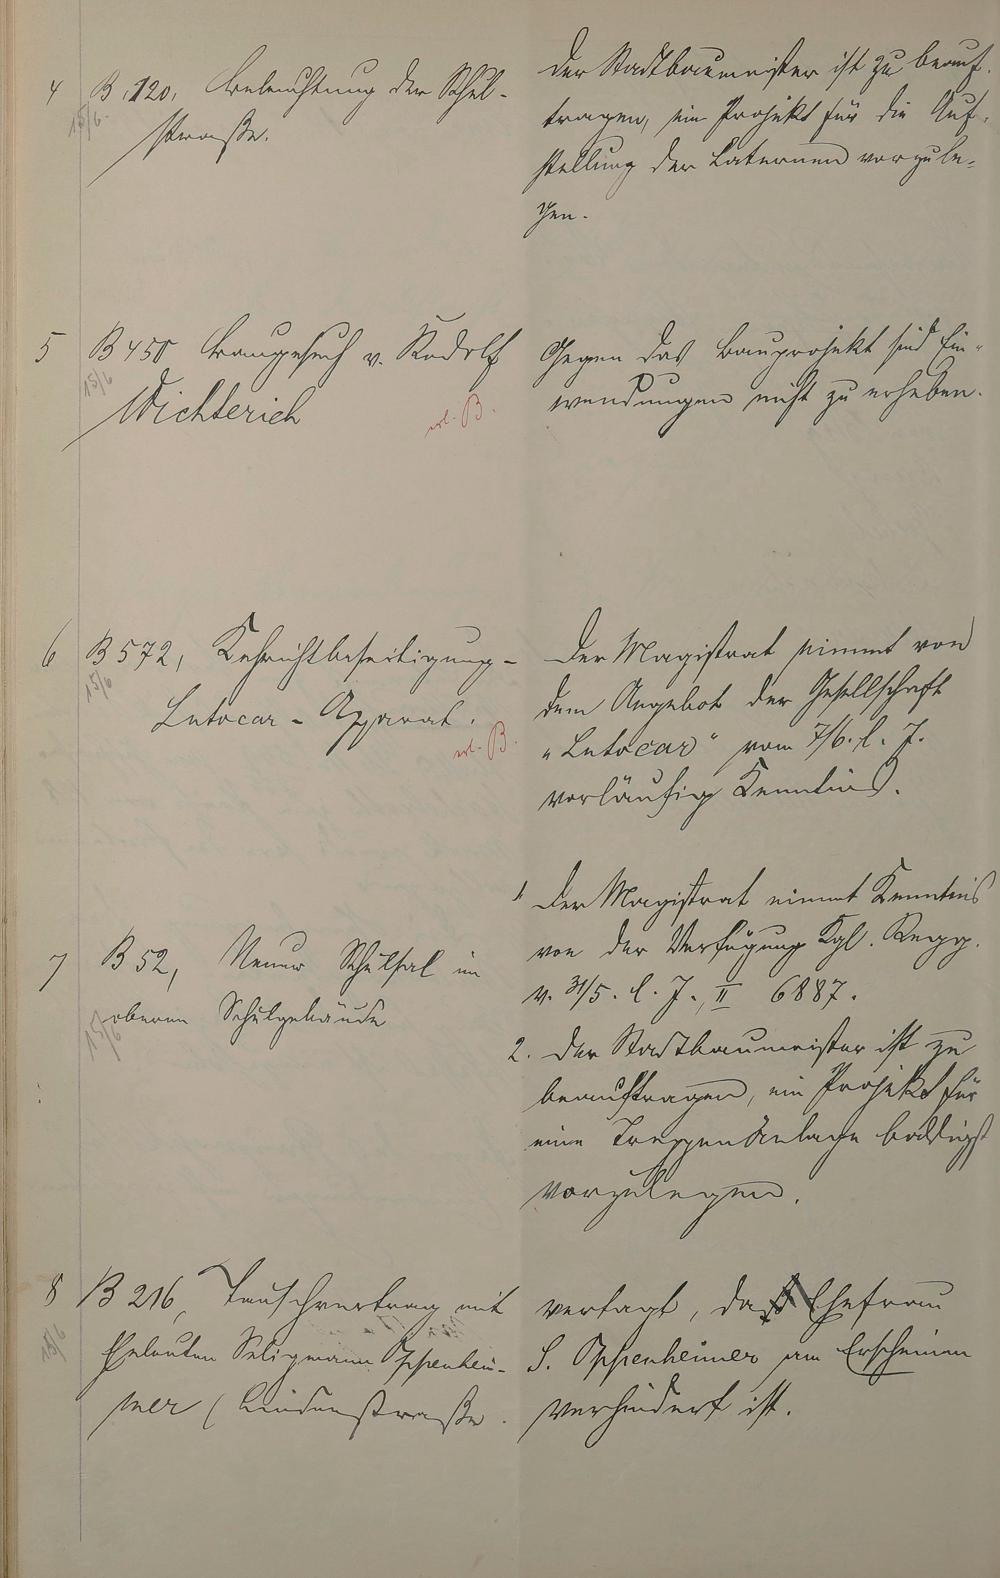 4 B. 120, Beleuchtung der Schul-
straße.
15/6.
Der Stadtbaumeister ist zu beauf-
tragen, ein Projekt für die Auf-
stellung der Laternen vorzule-
gen.
5 B 450 Baugesuch v. Rudolf
Wichterich
15/6
erl. B.
Gegen das Bauprojekt sind Ein-
wendungen nicht zu erheben.
6 B 572, Kehrichtbeseitigung-
Lutocar-Apparat.
15/6
erl. B.
Der Magistrat nimmt von
dem Angebot der Gesellschaft
"Lutocar" vom 7/6. l. J.
vorläufig Kenntnis.
7 B 52, Neuer Schulsal im
oberen Schulgebäude
15/6
1. Der Magistrat nimmt Kenntnis
von der Verfügung Kgl. Regg.
v. 31/5. l. J., II 6887.
2. Der Stadtbaumeister ist zu
beauftragen, ein Projekt für
eine Treppenanlage baldigst
vorzulegen.
8 B 216, Tauschvertrag mit
Eheleuten Seligmann Oppenhei-
mer (Lindenstraße.
15/6
vertagt, da Ehefrau
S. Oppenheimer am Erscheinen
verhindert ist.